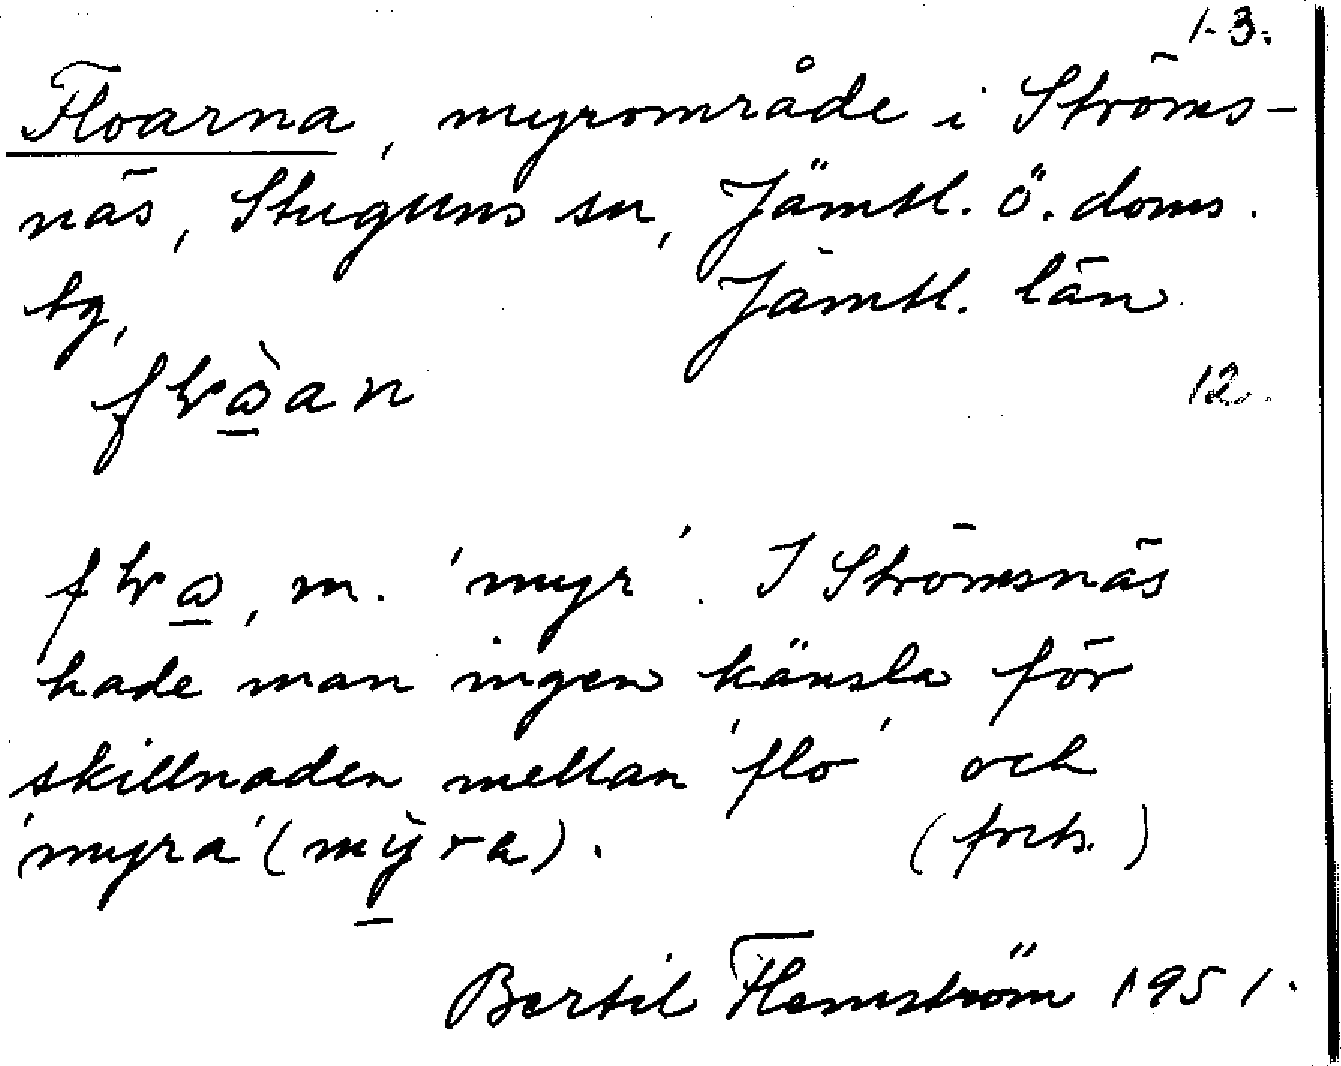 1-3.
Floarna, myrområde i Ströms-
näs, Stuguns sn, Jämtl. ö. doms.
tg, Jämtl. län
12.
m. 'myr'. I Strömsnäs
hade man ingen känsla för
skillnaden mellan 'flo' och
'myra' (mỳra). (forts.)
Bertil Flemström 1951.